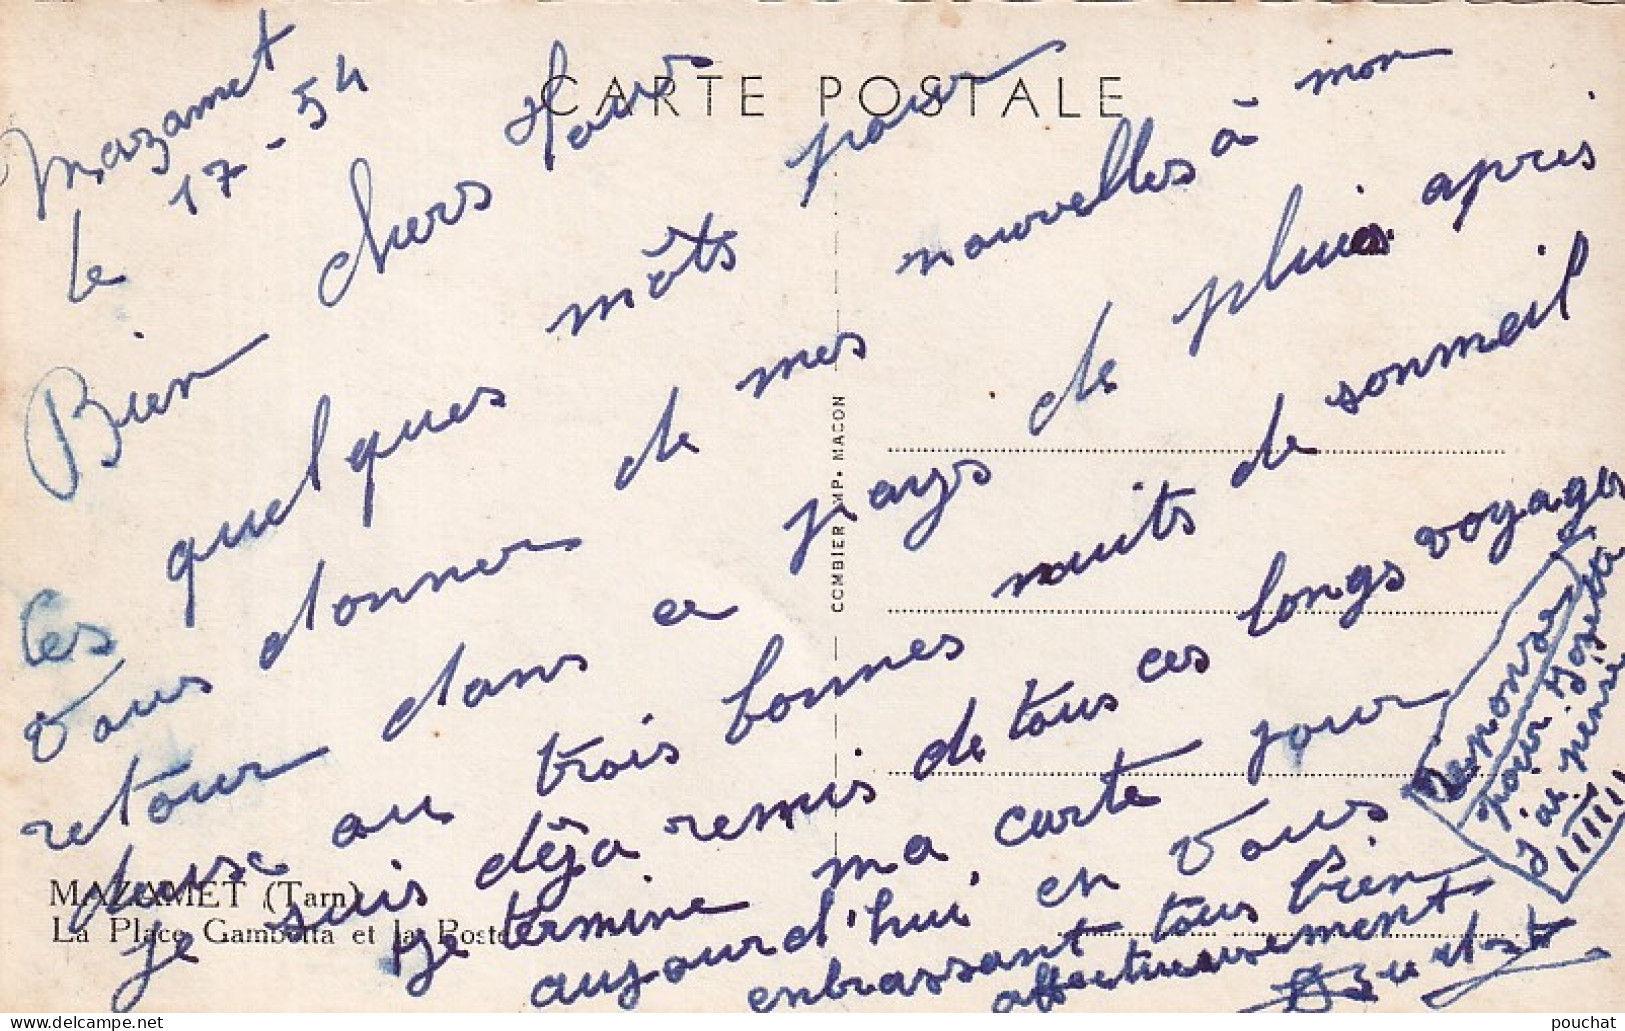 CARTE POSTALE
Mazamet
le 17-54
Bien chers tous
Ces quelques môts pour
vous donner de mes nouvelles à mon
retour dans ce pays de pluies après
deux au trois bonnes nuits de sonmeil
je suis dêja remis de tous ces longs voyages
je termine ma carte pour
aujourd'hui en vous
enbrassant tous bien
affectueusement
reponse
pour Josette
COMBIER IMP. MACON
MAZAMET (Tarn)
La Place Gambetta et la Poste
pouchat